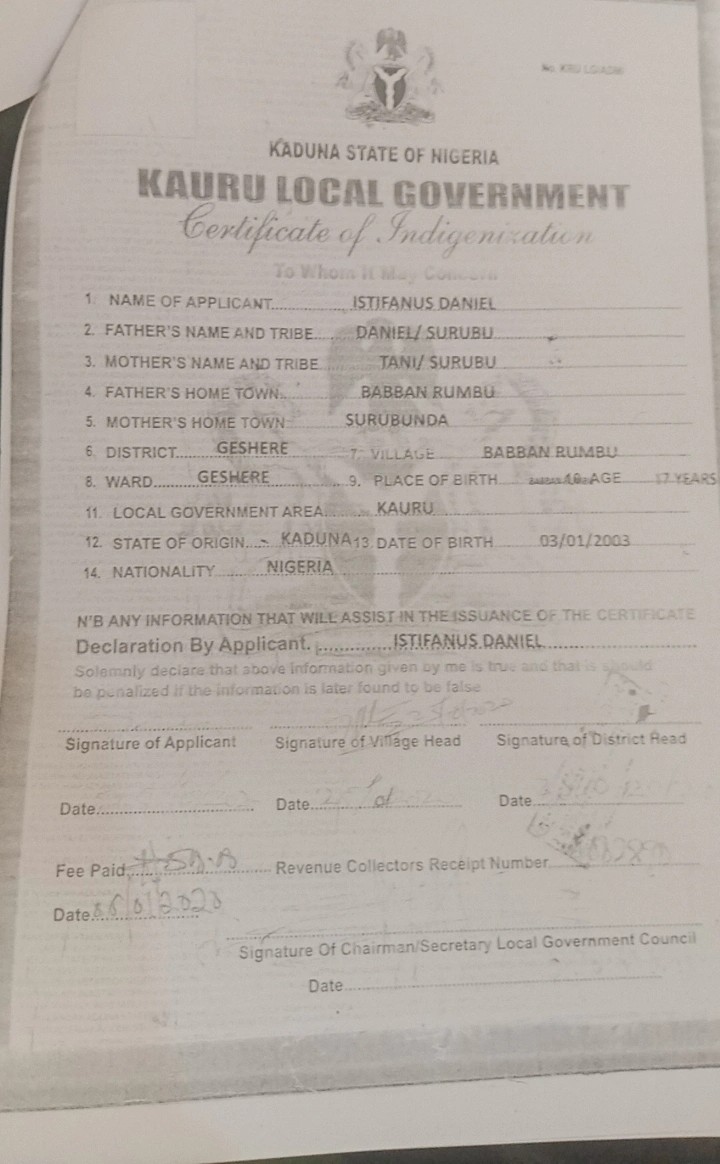 KADUNA STATE OF NIGERIA
KAURU LOCAL GOVERNMENT
Certificate of Indigenization
To Whom It May Concern
1. NAME OF APPLICANT.................. ISTIFANUS DANIEL
2. FATHER'S NAME AND TRIBE....... DANIEL/ SURUBU
3. MOTHER'S NAME AND TRIBE..... TANI/ SURUBU
4. FATHER'S HOME TOWN..... BABBAN RUMBU
5. MOTHER'S HOME TOWN SURUBUNDA
6. DISTRICT........ GESHERE 7. VILLAGE .... BABBAN RUMBU
8. WARD......... GESHERE 9. PLACE OF BIRTH 10. AGE 17 YEARS
11. LOCAL GOVERNMENT AREA........ KAURU
12. STATE OF ORIGIN..... KADUNA 13. DATE OF BIRTH 03/01/2003
14. NATIONALITY.......... NIGERIA
N'B ANY INFORMATION THAT WILL ASSIST IN THE ISSUANCE OF THE CERTIFICATE
Declaration By Applicant. ............... ISTIFANUS DANIEL..............
Solemnly declare that above information given by me is true and that is should
be penalized if the information is later found to be false
Signature of Applicant Signature of Village Head Signature of District Head
Date.............................. Date.............................. Date..............................
Fee Paid.............................. Revenue Collectors Receipt Number
Date
Signature Of Chairman/Secretary Local Government Council
Date..............................